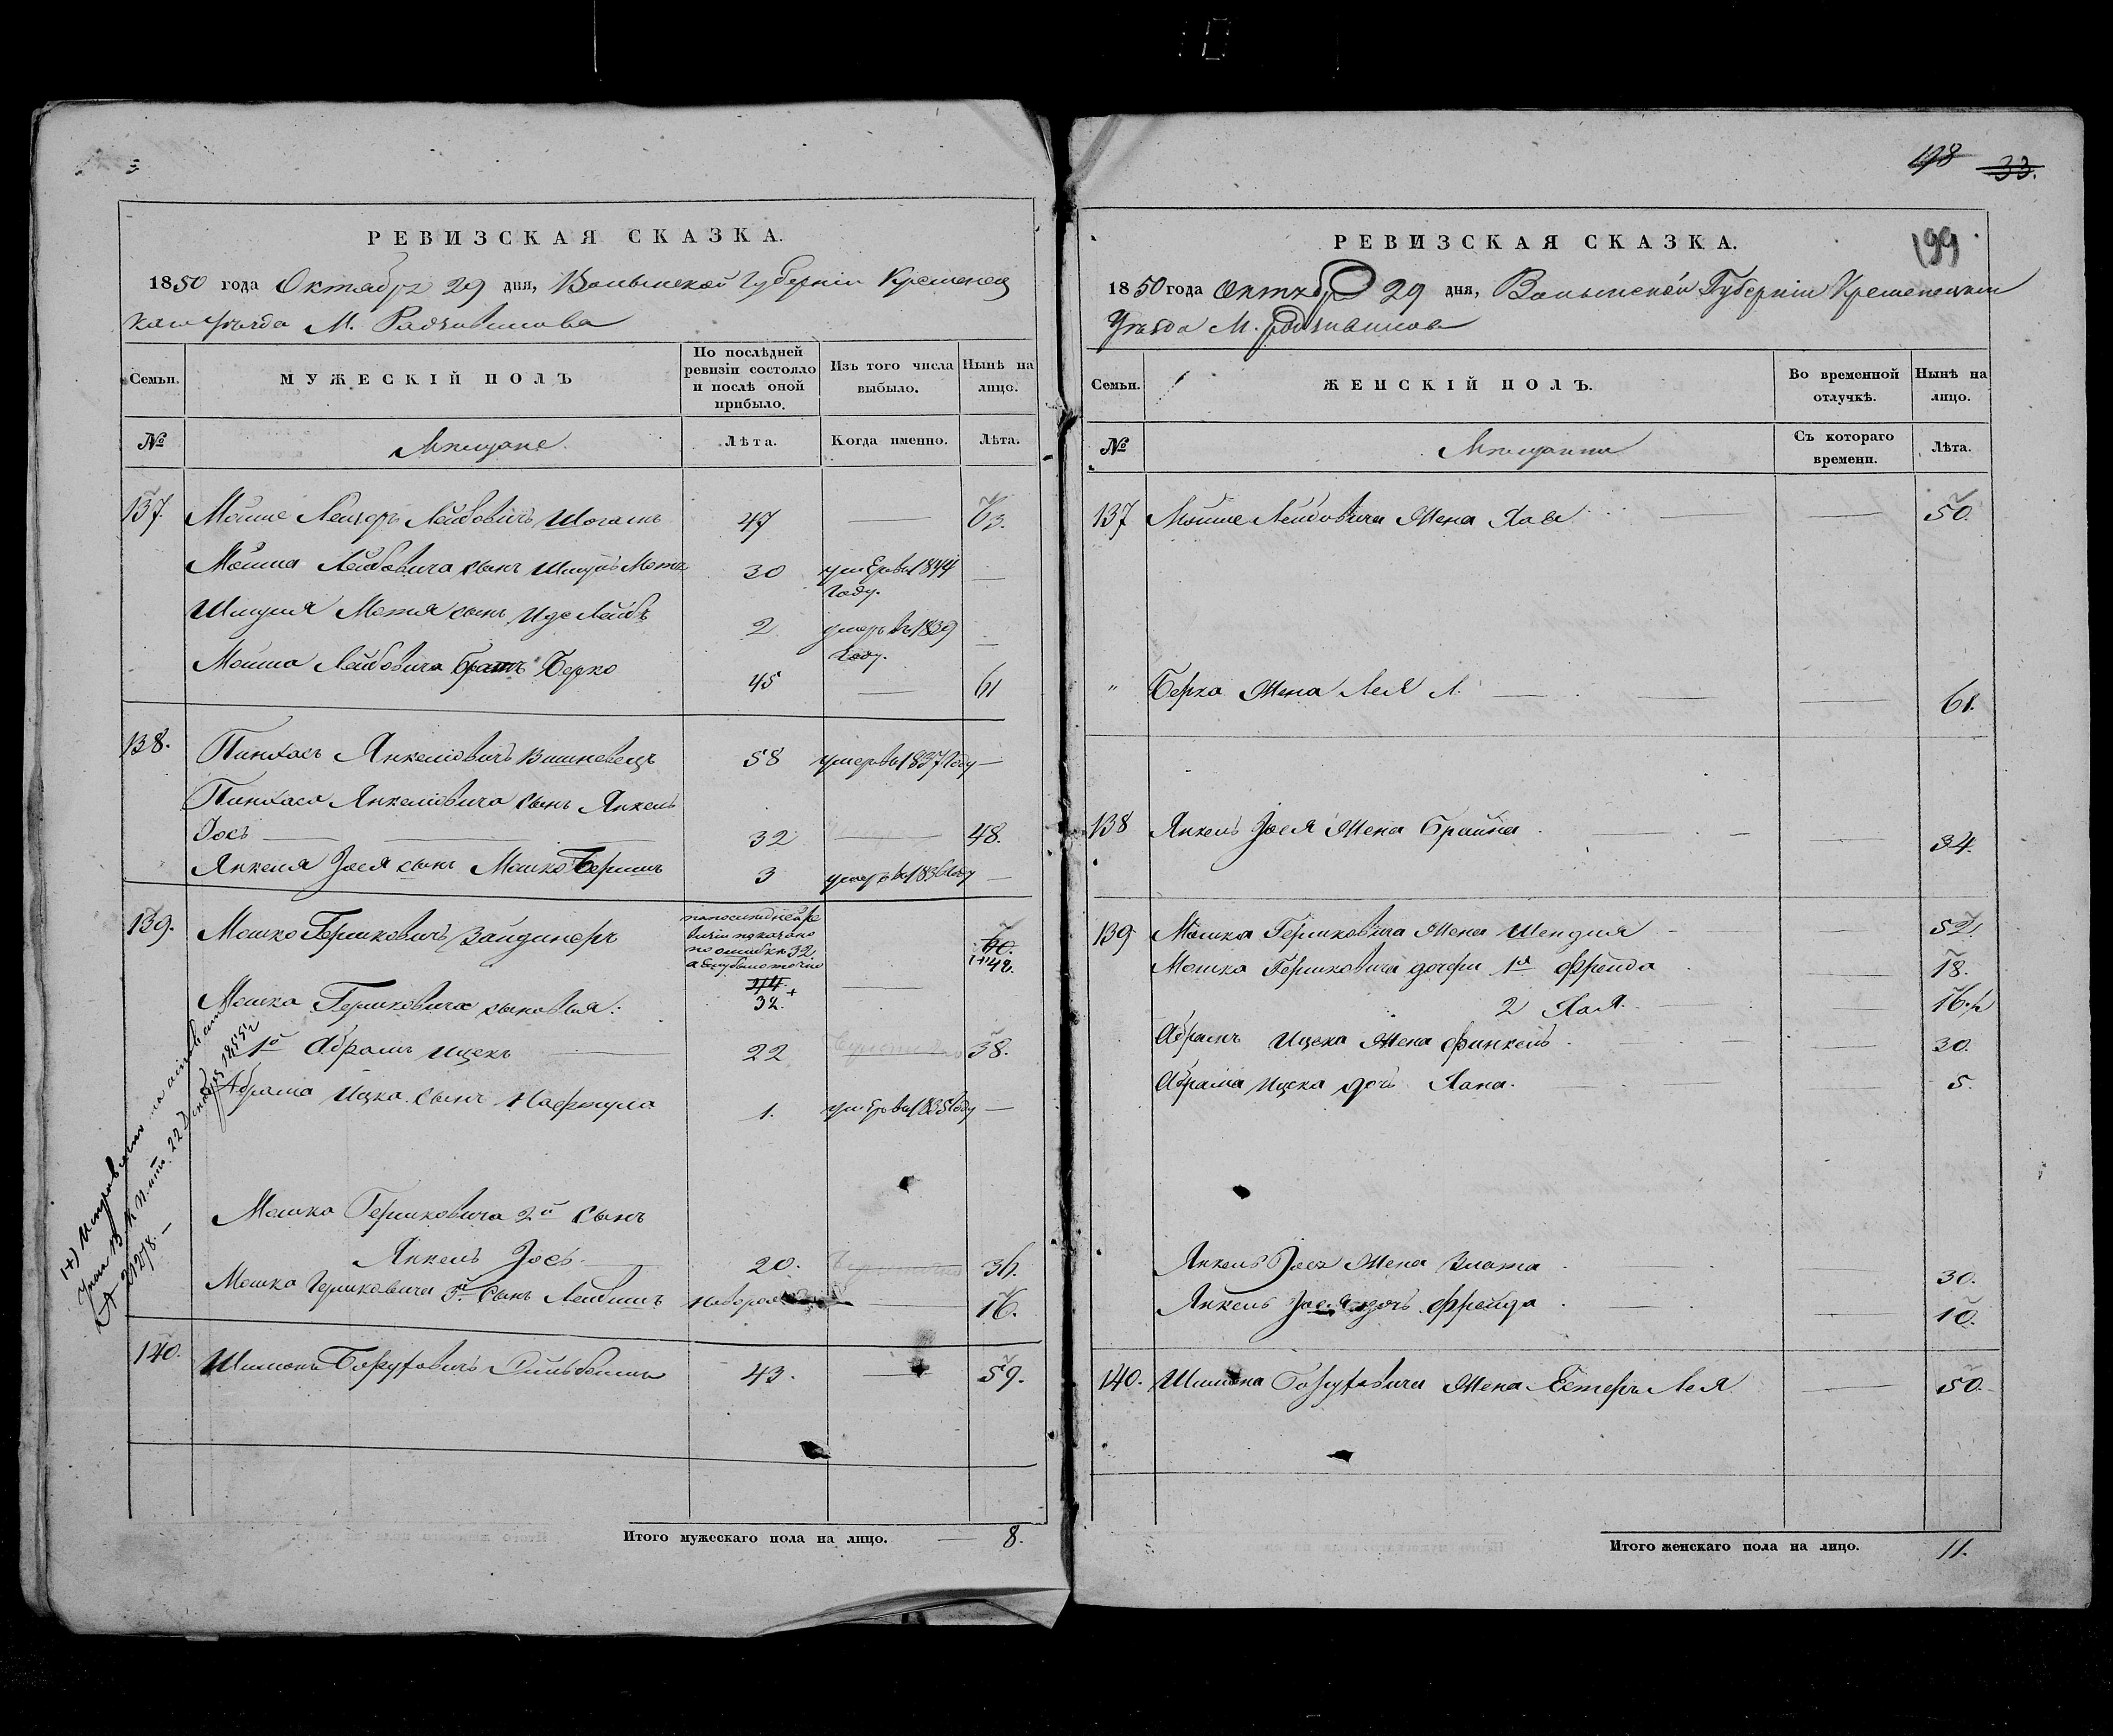 198 33.
199
РЕВИЗСКАЯ СКАЗКА.
1850 года Октября 29 дня, Волынской Губерніи Кременец
каго уѣзда М. Радзивилова
Семьи.
МУЖЕСКІЙ ПОЛЪ
По послѣдней ревизіи состояло и послѣ оной прибыло.
Изъ того числа выбыло.
Нынѣ на лицо.
№ Мѣщане. Лѣта. Когда именно. Лѣта.
137. Мошие Лейзоръ Лейбовичъ 47 — 63.
Мошка Лейбовича сынъ Шмуль Мотя 30 умеръ въ 1844 году. —
Шмуля Мотя сынъ Иде Лейбъ 2 умеръ въ 1839 году. —
Мошка Лейбовича братъ Берко 45 — 61
138. Пинхасъ Янкелювичъ Вишневецъ 58 умеръ въ 1837 году —
Пинхаса Янкелювича сынъ Янкель
Іосъ — 32 — 48.
Янкеля Іося сынъ Мошко Бершъ 3 умеръ въ 1836 году —
139. Мошко Гершковичъ Зайдинеръ
по последней ре
визіи показано
по ошибкѣ 32.
а ему было точно
32. +
48.
Мошка Гершковича сыновья:
1й Абрамъ Ицекъ — 22 38.
Абрама Ицка сынъ Нафтула 1. умеръ въ 1835 году —
Мошка Гершковича 2й сынъ
Янкель Іосъ 20. 36.
Мошка Гершковича 3й сынъ Лейбишъ — 16.
140. Шимонъ Борухович 43. — 59.
Итого мужескаго пола на лицо. — 8.
1+) Исправлено на основаніи
22 Декабря 1855 г
№ 21278. —
РЕВИЗСКАЯ СКАЗКА.
1850 года Октября 29 дня, Волынской Губерніи Кременецкаго
Уѣзда М. Радзивилова
Семьи.
ЖЕНСКІЙ ПОЛЪ.
Во временной отлучкѣ.
Нынѣ на лицо.
№ Мѣщанки Съ котораго времени. Лѣта.
137 Мошие Лейбовича жена Хава — 50.
" Берка жена Лея Л. — 61.
138 Янкель Іося жена Брайна — 34.
139 Мошка Гершковича жена Шендля — 52.
Мошка Гершковича дочери 1я Фрейда — 18.
2 Хая — 16.
Абрамъ Ицека жена Финкель — 30.
Абрама Ицека дочь Хана. — 5.
Янкель Іося жена Злата — 30.
Янкель Іося дочь Фрейда — 10.
140. Шимона Боруховича жена Естеръ Лея — 50.
Итого женскаго пола на лицо. 11.